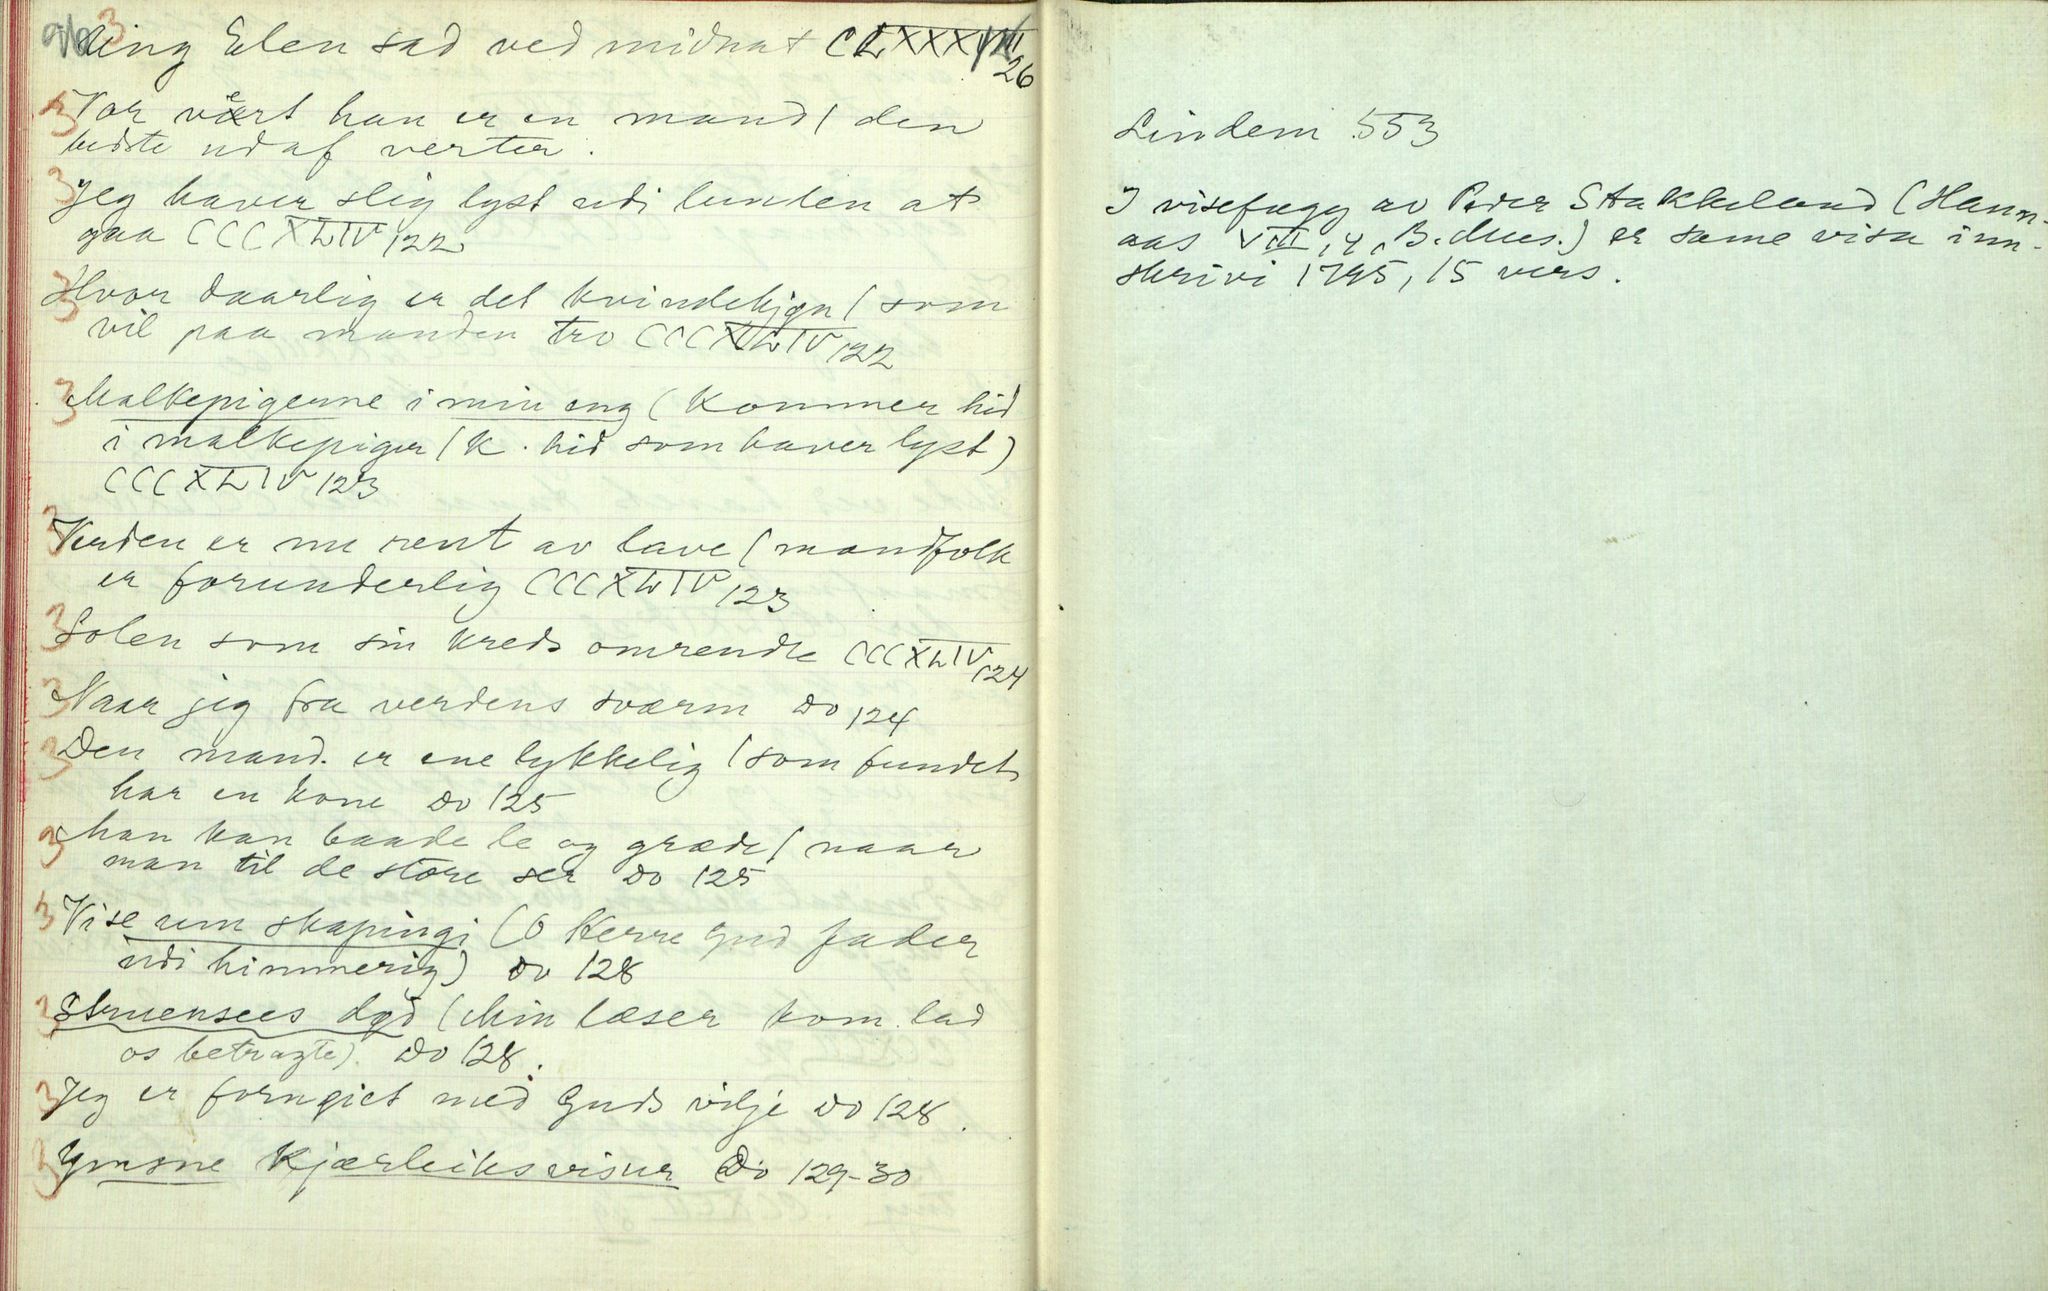 96
Ung Elen sad ved midnat CLXXXVIII 26
Vor vert han er en mand / den
bedste ud af verter.
Jeg haver slig lyst udi lunden at
gaa CCCXLIV 122
Hvor daarlig er det kvindekjøn / som
vil paa manden tro CCCXLIV 122
Malkepigerne i min eng (Kommer hid
i malkepiger / k. hid som haver lyst)
CCCXLIV 123
Verden er nu rent av lave / mandfolk
er forunderlig CCCXLIV 123
Solen som sin kreds omrendte CCCXLIV 124
Naar jeg fra verdens sværm Do 124
Den mand er ene lykkelig / som fundet
har en kone Do 125
Man kan baade le og græde / naar
man til de store ser Do 125
Vise um skapingi (O Herre Gud fader
udi himmerig) Do 128
Struensees død (Min læser kom lad
os betragte). Do 128.
Jeg er fornøiet med Guds vilje Do 128.
Ymsne kjærleiksvisur Do 129-30
Lindem 553
I visefugg av Peder Stakkeland (Hann-
aas VIII, 4, B. Mus.) er same visa inn-
skrivi 1795, 15 vers.